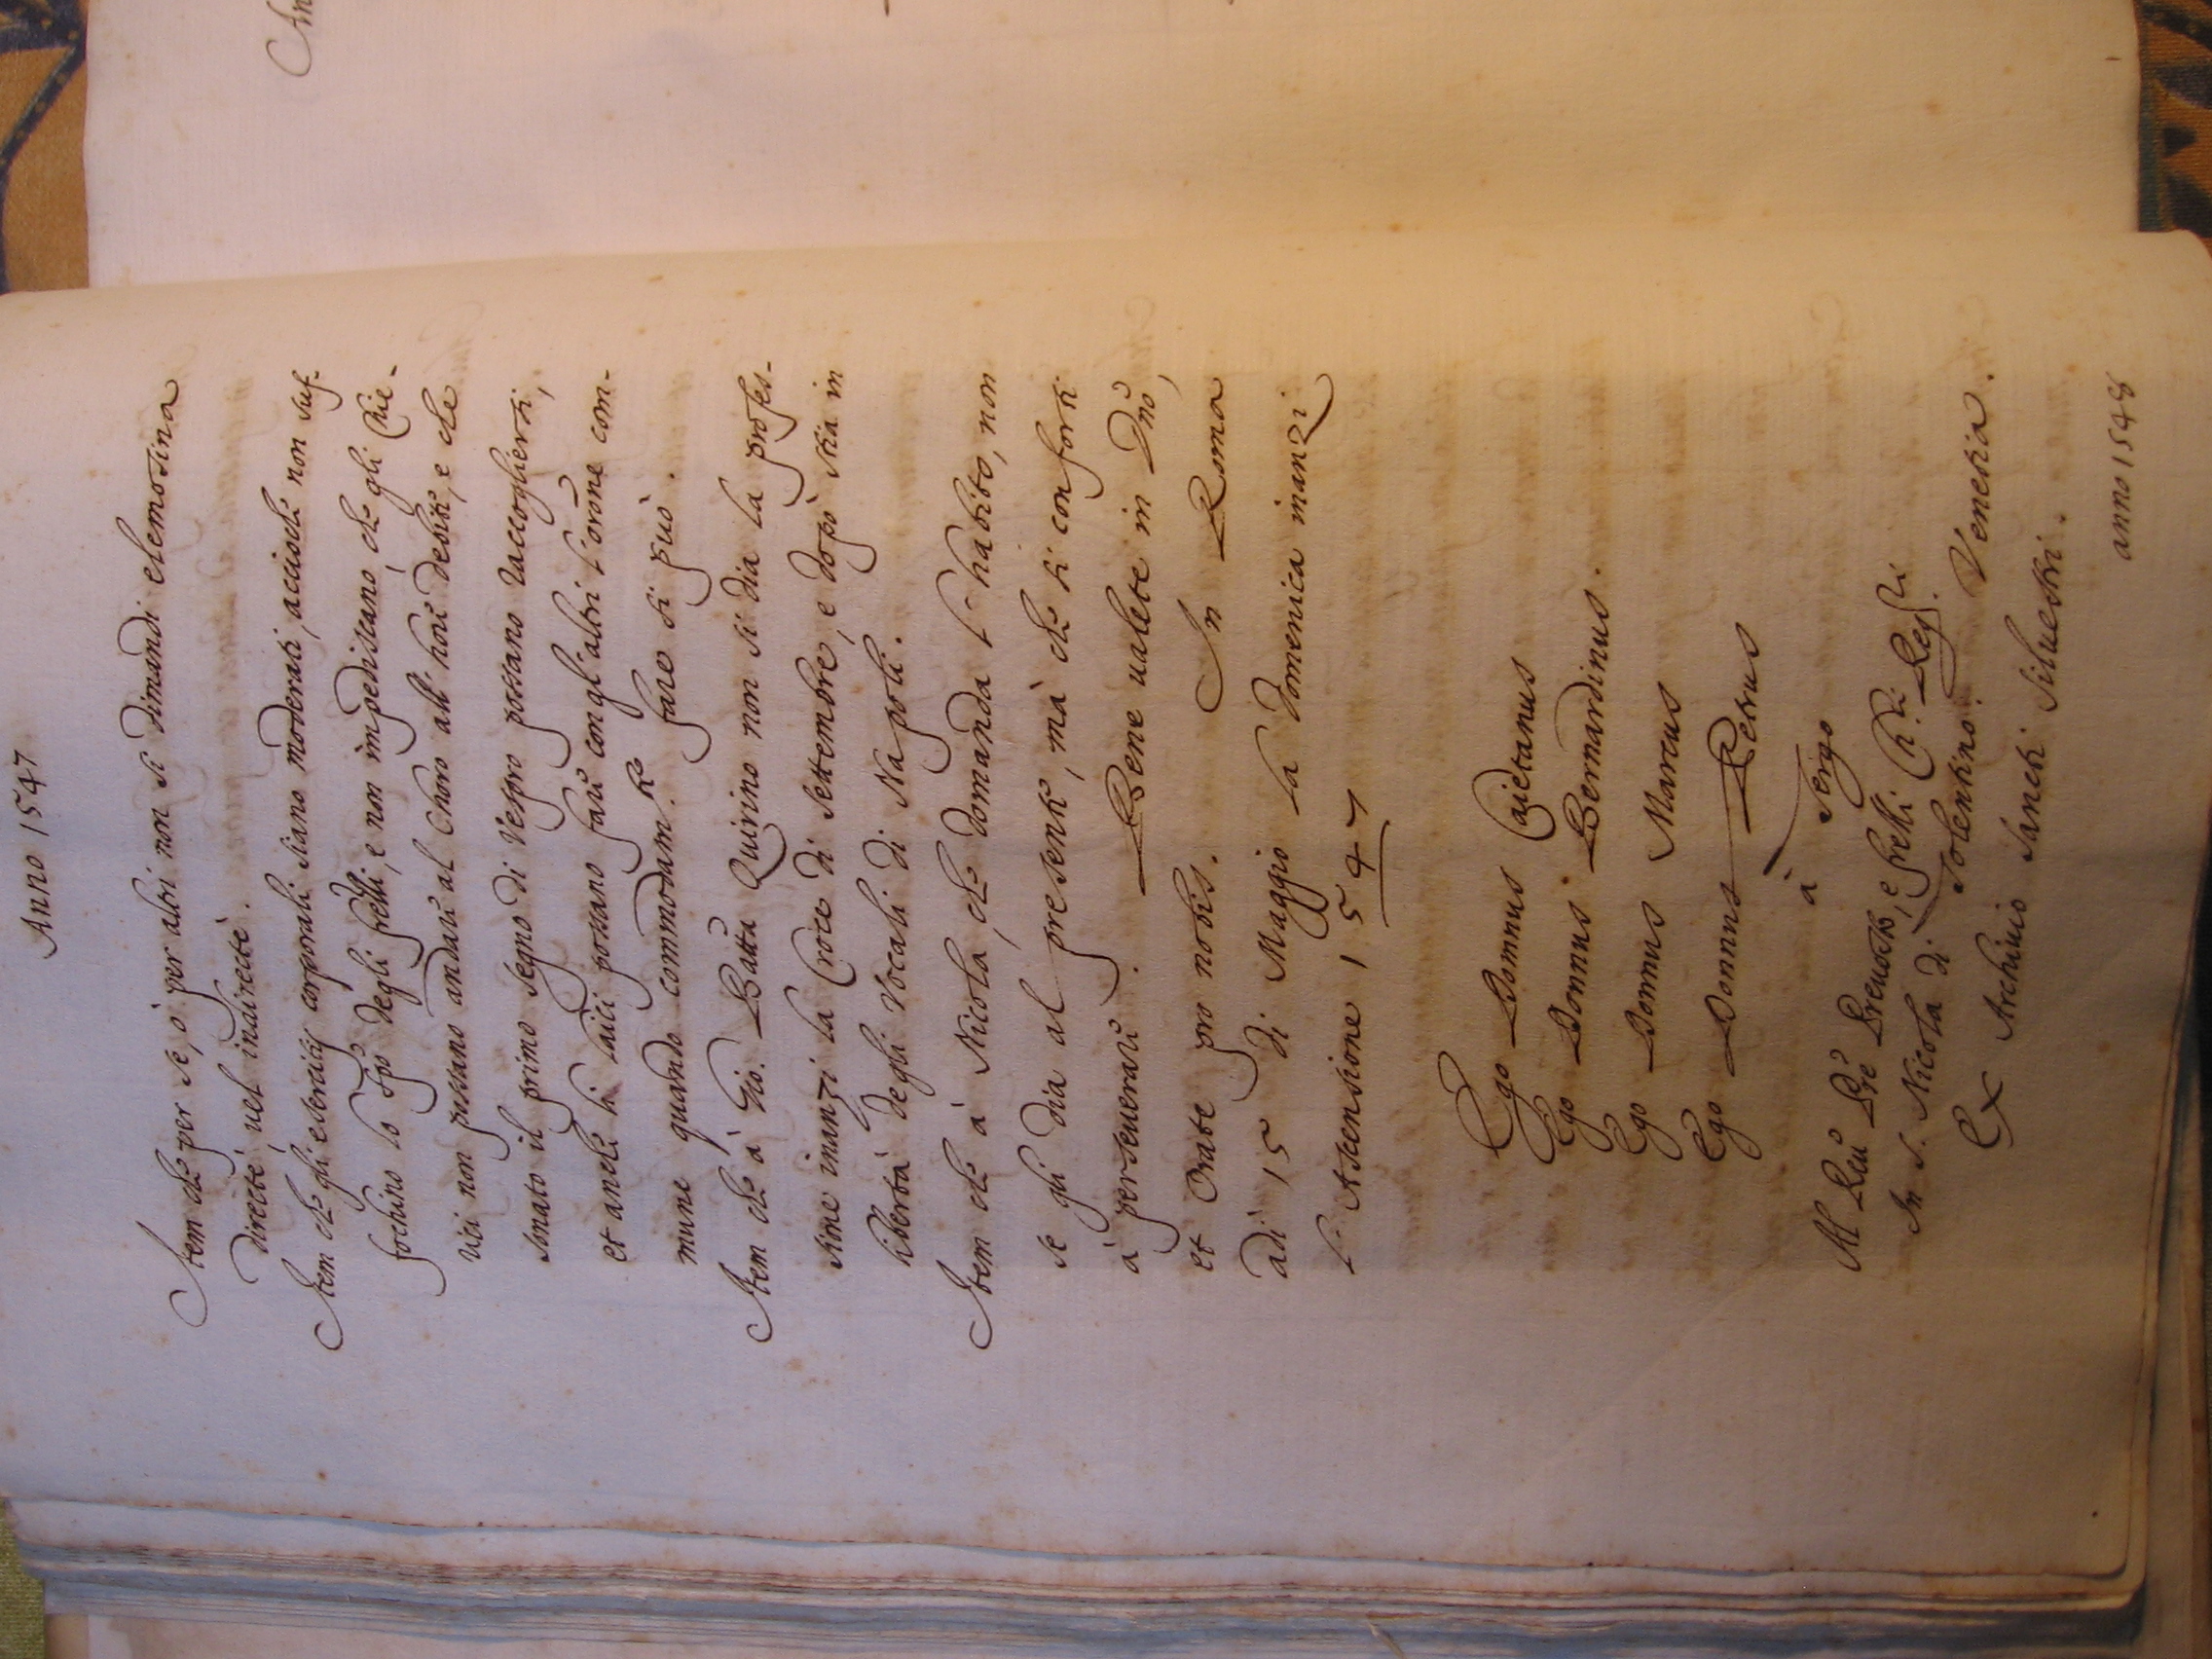 Anno 1547
Item che per se, o per altri non si dimandi elemosina
directè, uel indirectè.
Item che gli esercitij corporali siano moderati, acciochè non suf-
fochino lo Spō degli frelli, e non impediscano, che gli Chie-
rici non possano andare al Choro all' hore debite, e che
sonato il primo segno di Vespro possano raccogliersi,
et anche li laici possano fare con gl'altri l'orōne com-
mune quando commodam.te fare si può.
Item che à Gio. Batta Quirino non si dia la profes-
sione inanzi la Croce di Settembre, e dopò stia in
libertà degli Vocali di Napoli.
Item che à Nicola, che domanda l'habito, non
se gli dia al presente, mà che si conforti
à perseuerare. Bene ualete in Dno,
et Orate pro nobis. In Roma
adi 15 di Maggio la Domenica inanzi
l'Ascensione 1547
Ego Domnus Caietanus
Ego Donnus Bernardinus.
Ego Donnus Marcus
Ego Donnus Petrus
à tergo
Al Reu Pre Preuosto, e frelli Ch.ci Reg.ri
In S. Nicola di Tolentino. Venetia.
Ex Archiuio Sancti Siluestri.
anno 1548